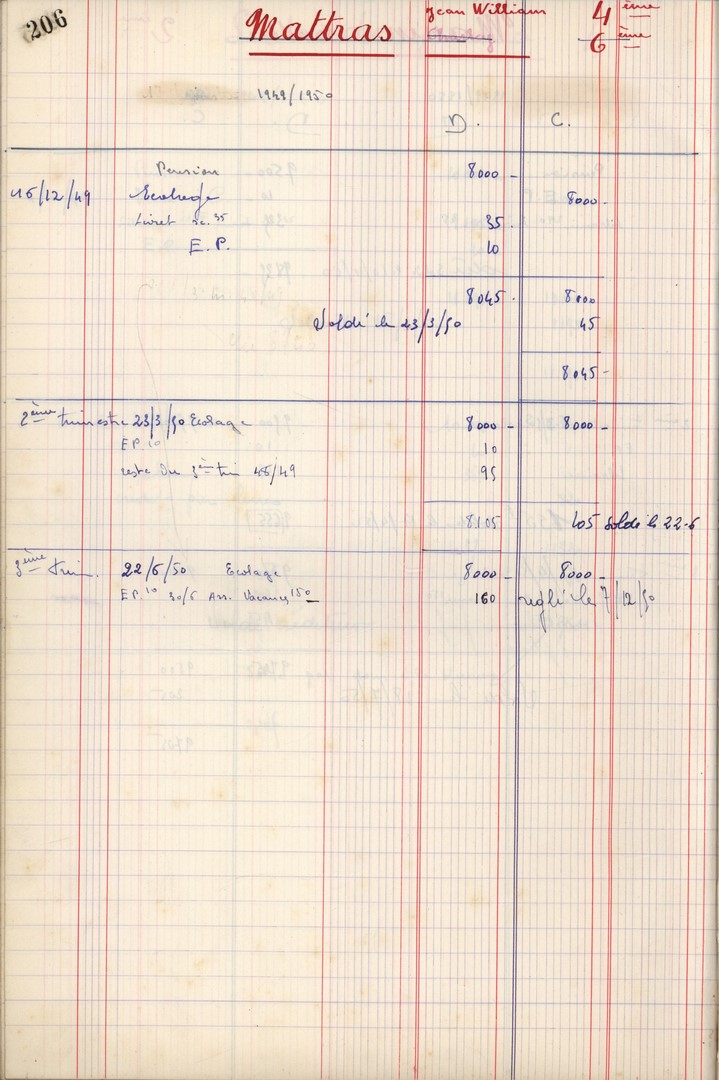 206
Mattras Jean William 4ème
6ème
1949/1950
D. C.
Pension 8000 -
16/12/49 Ecolage 8000 -
Livret sc. 35 35 .
E.P. 10
8045 . 8000
Soldé le 23/3/50 45
8045 -
2ème trimestre 23/3/50 Ecolage 8000 - 8000 -
EP. 10 10
reste du 3ème tri 48/49 95
8105 105 soldé le 22-6
3ème trim. 22/6/50 Ecolage 8000 - 8000 -
EP. 10 30/6 Ass. Vacances 150 160 réglé le 7/12/50